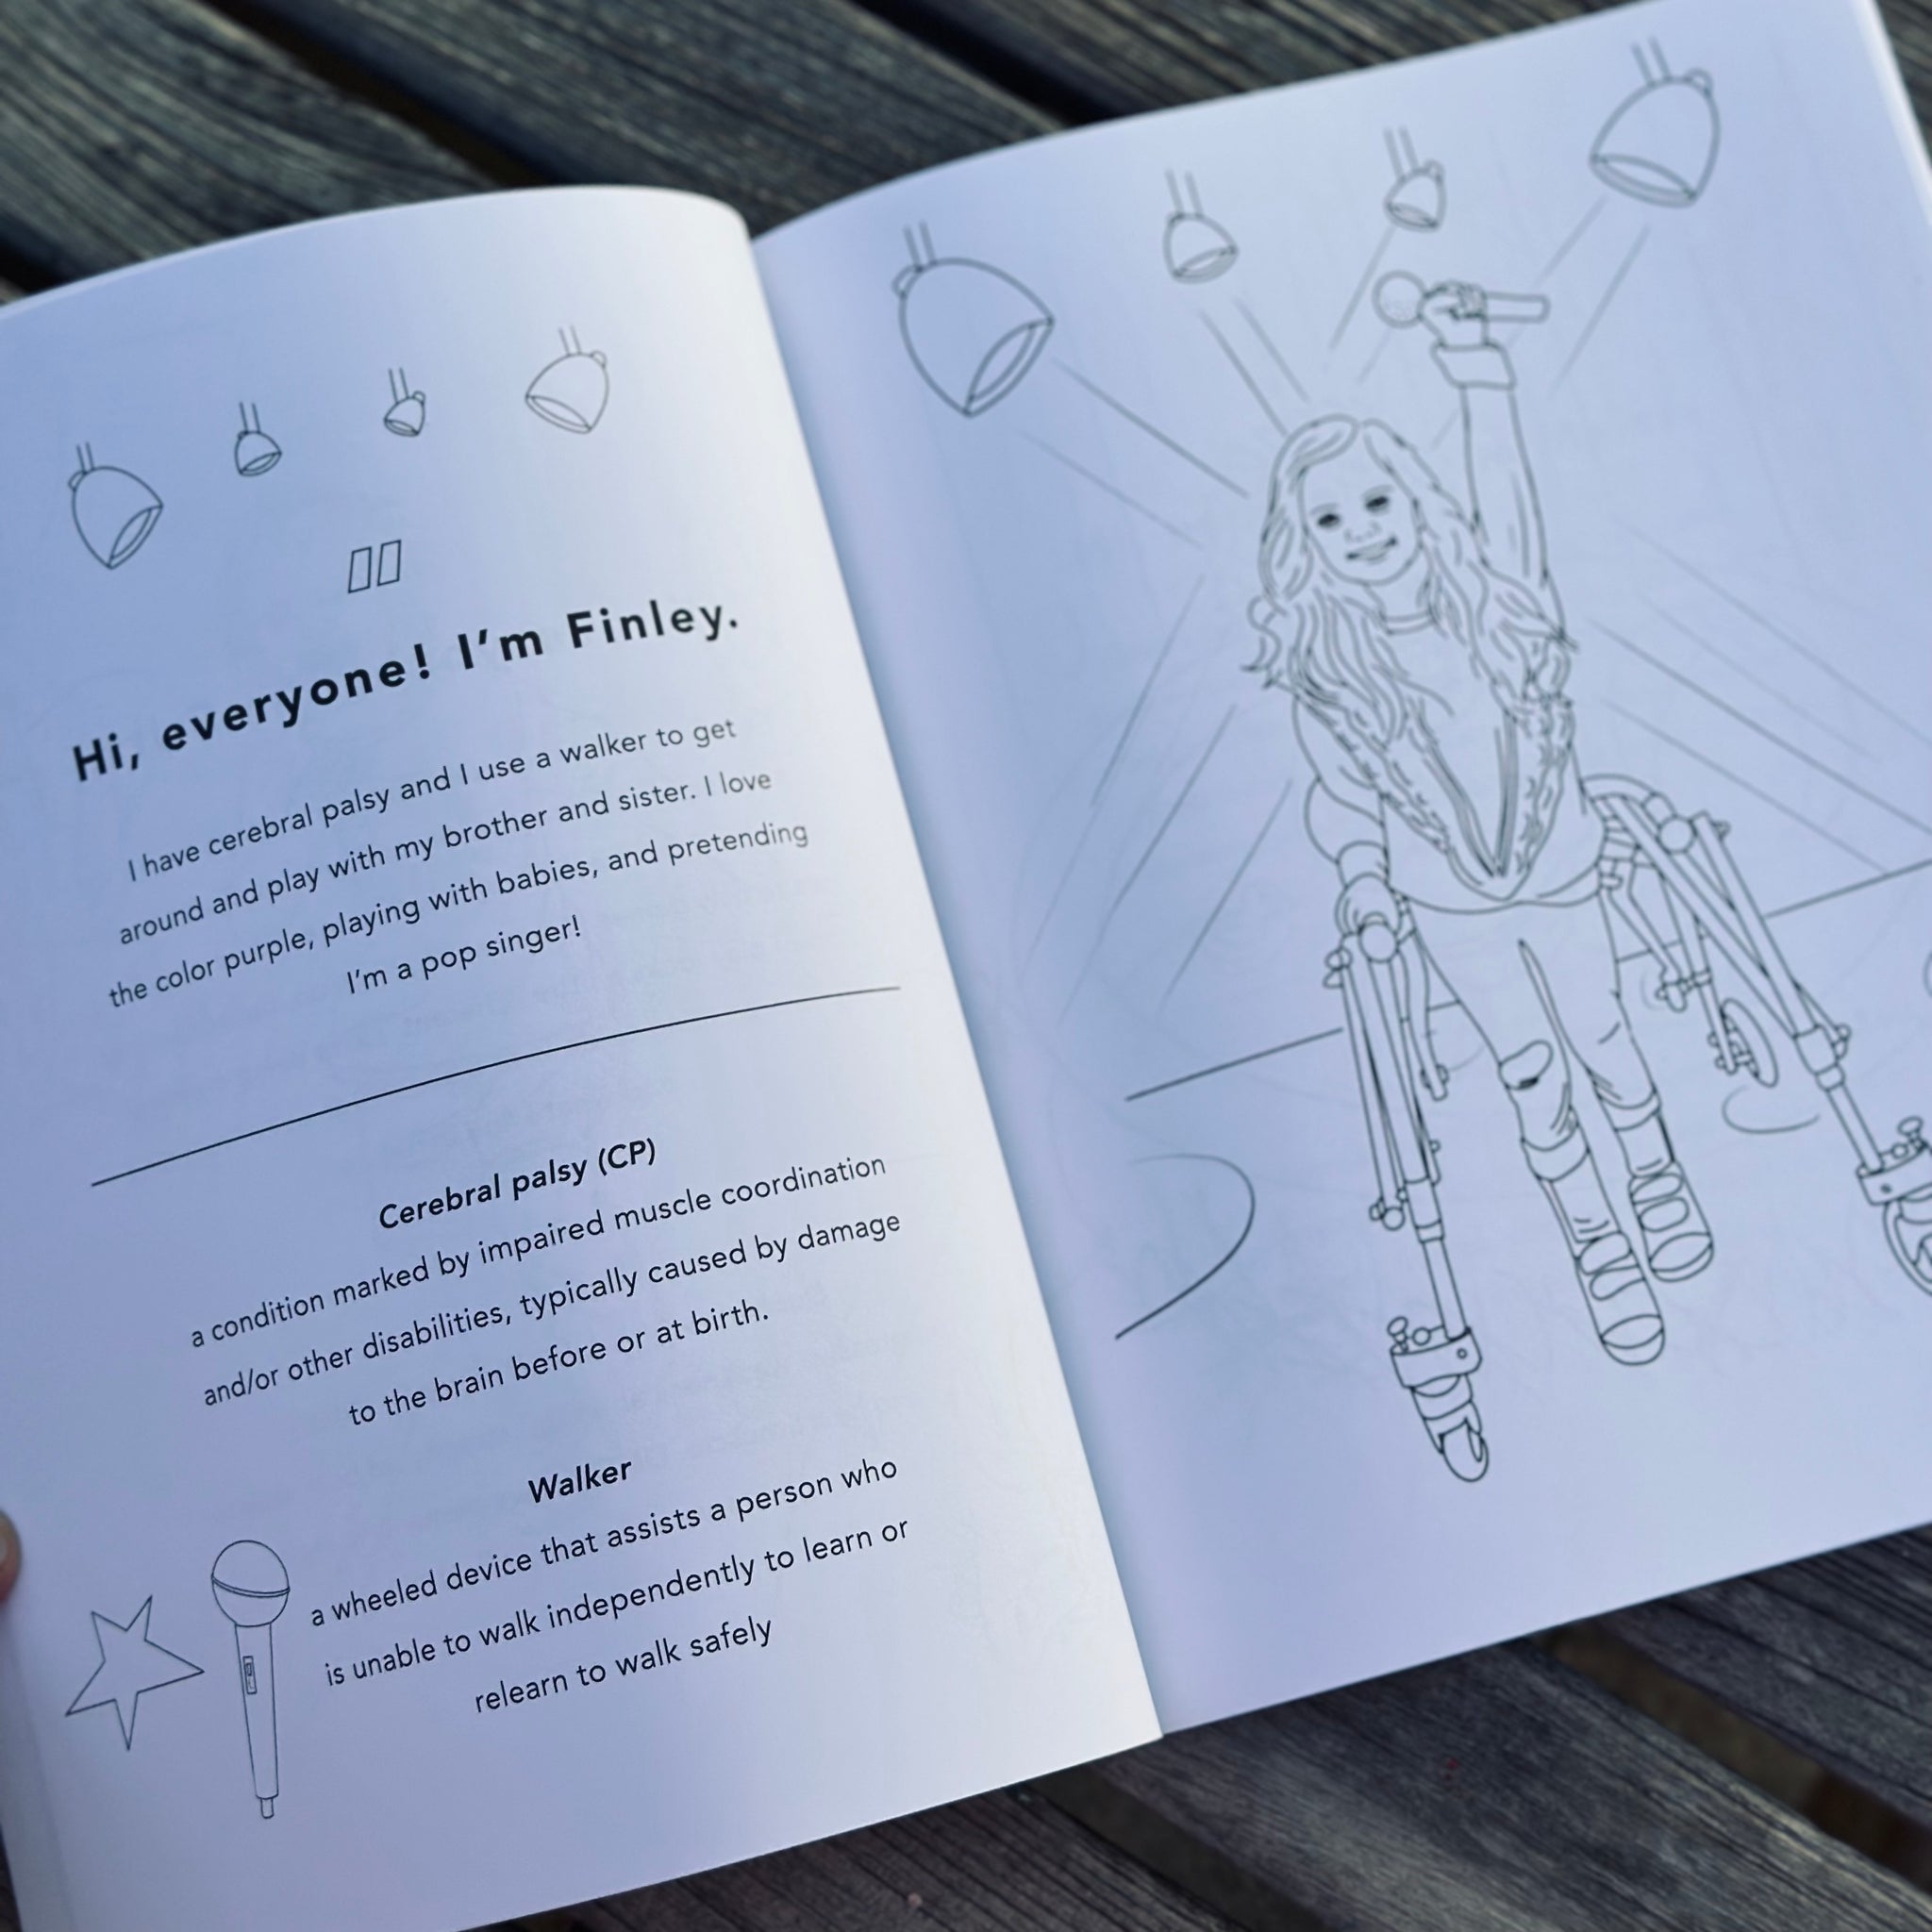 Hi, everyone! I'm Finley.
I have cerebral palsy and I use a walker to get
around and play with my brother and sister. I love
the color purple, playing with babies, and pretending
I'm a pop singer!
Cerebral palsy (CP)
a condition marked by impaired muscle coordination
and/or other disabilities, typically caused by damage
to the brain before or at birth.
Walker
a wheeled device that assists a person who
is unable to walk independently to learn or
relearn to walk safely